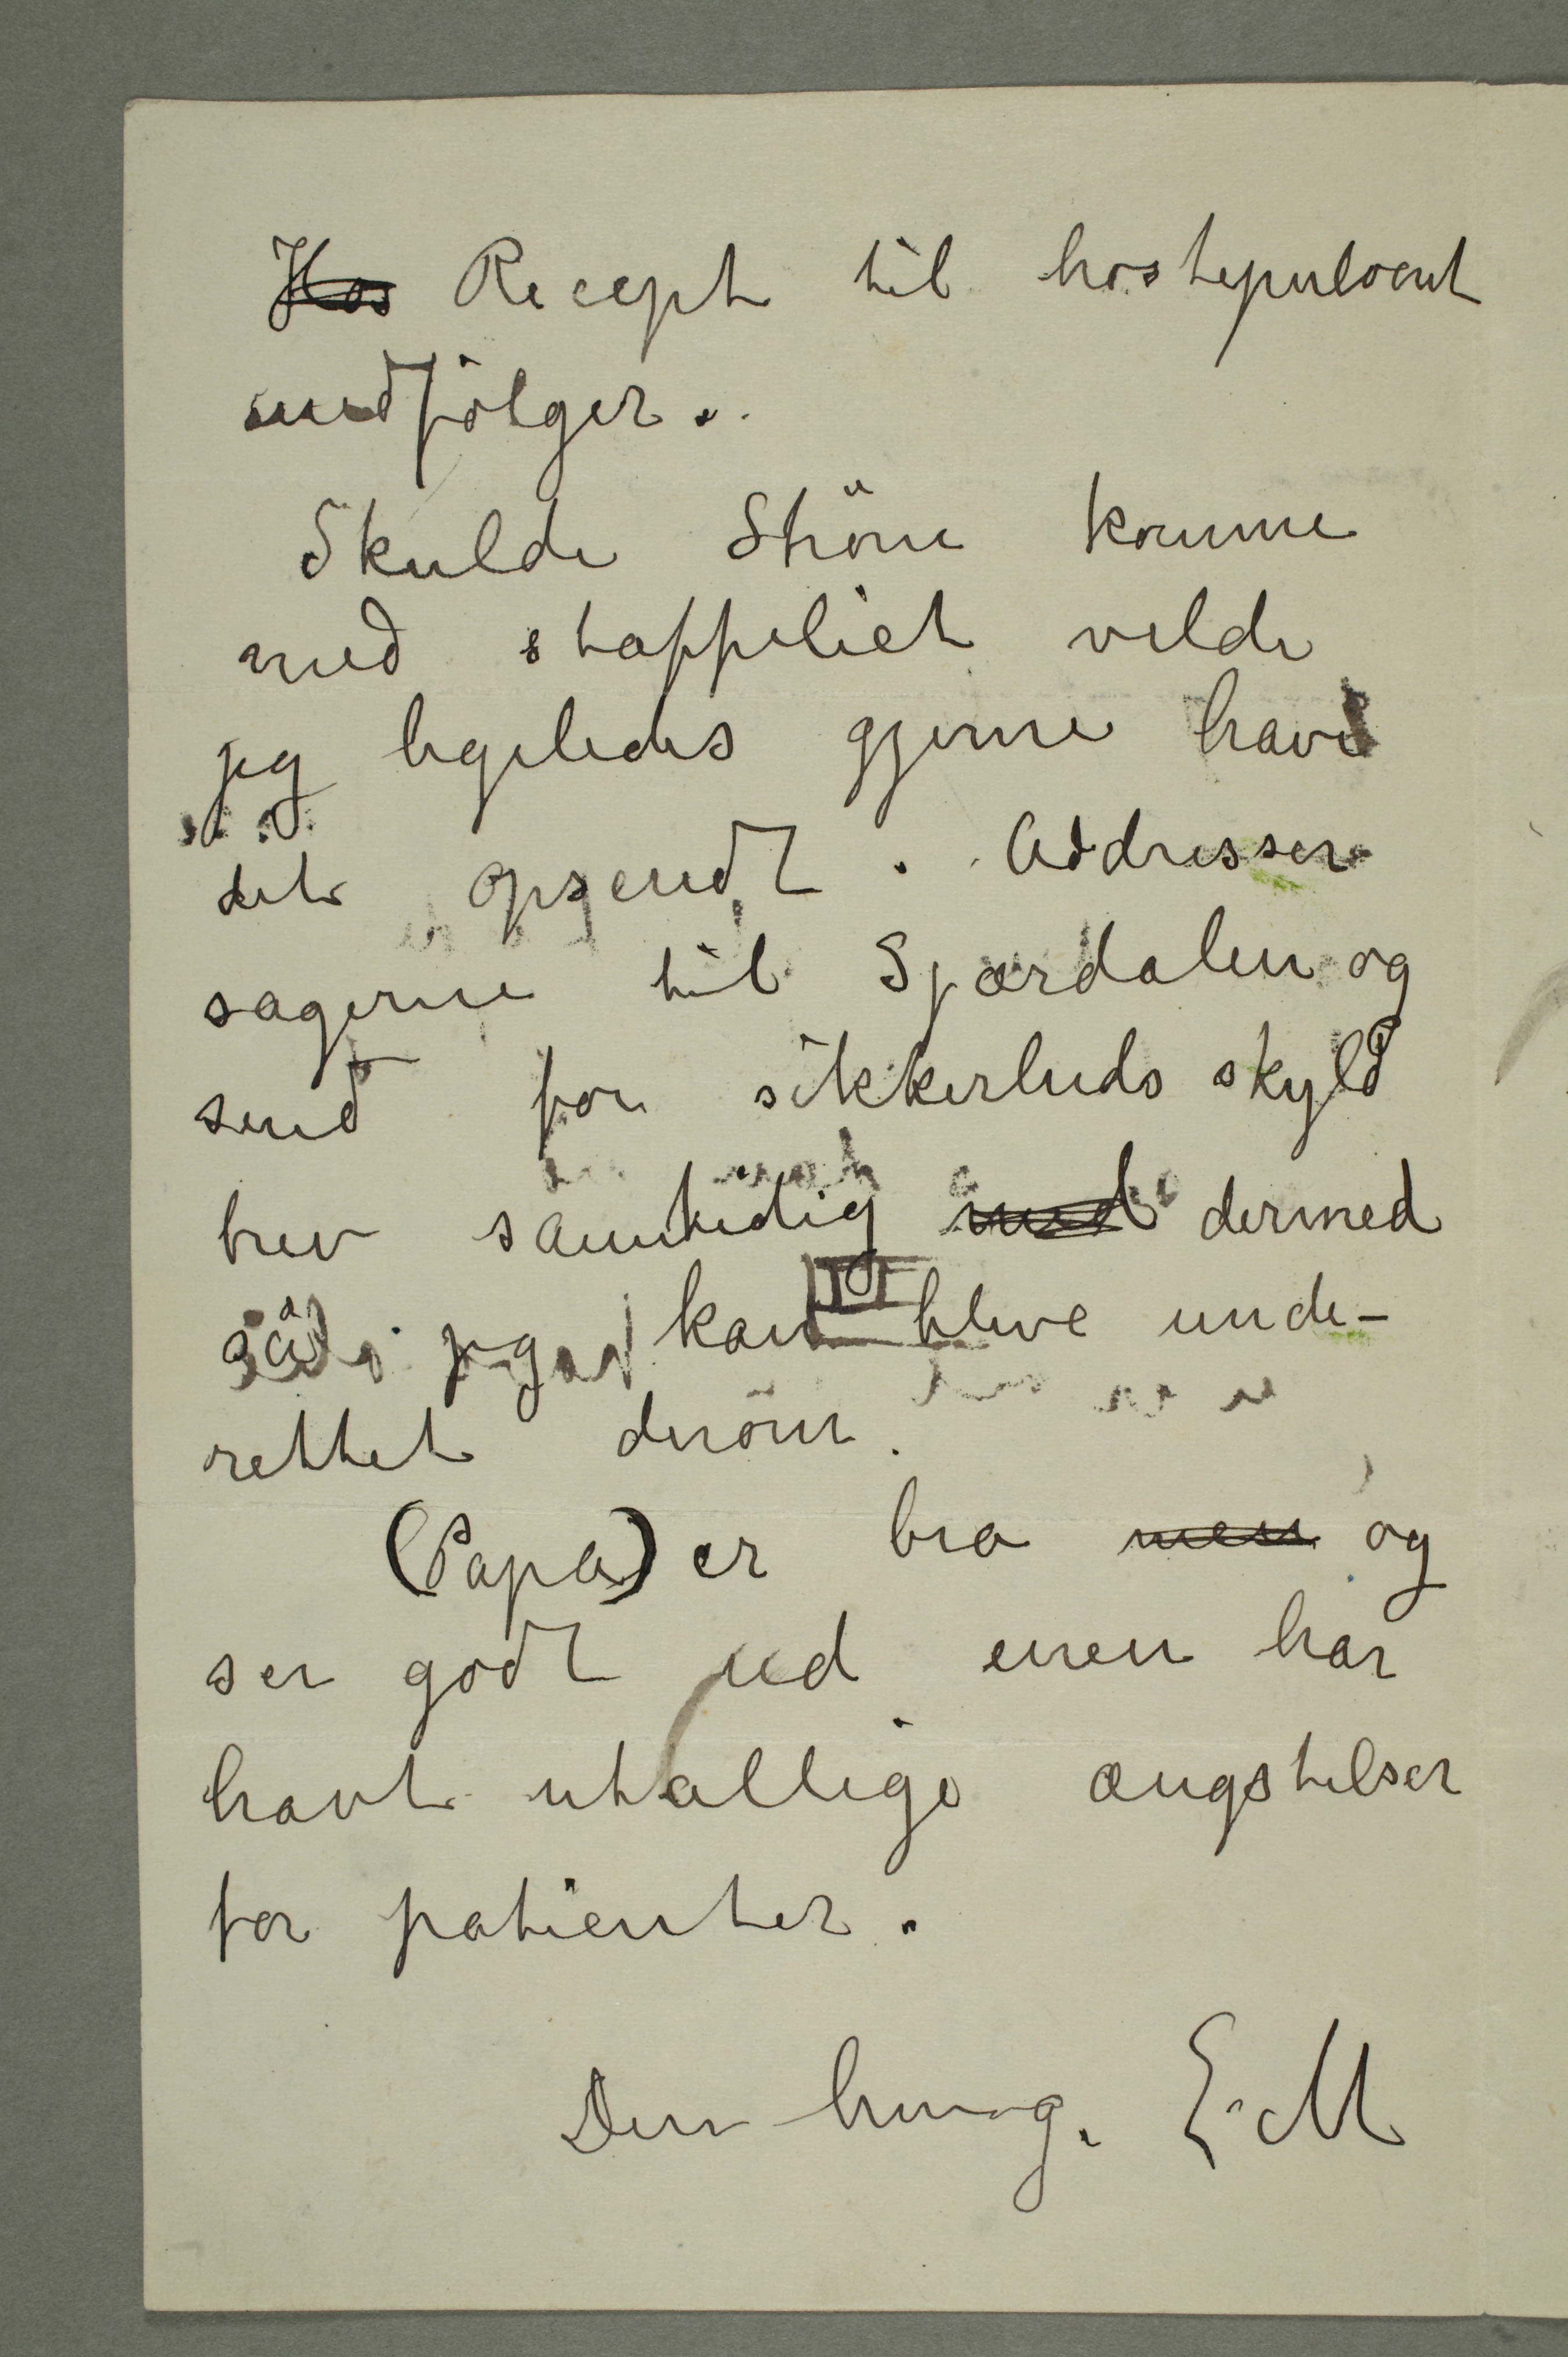 Hos Recept til hostepulvert
medfölger.
Skulde Ström komme
med staffeliet vilde
jeg ligeledes gjerne have
det opsendt. Addresser
sagerne til Sjørdalen og
send for sikkerheds skyld
brev samtidig med dermed
så jeg kan blive unde-
rettet derom.
(Papa) er bra men og
ser godt ud men har
havt utallige ængstelser
for patienter.
Din hengg. E. M